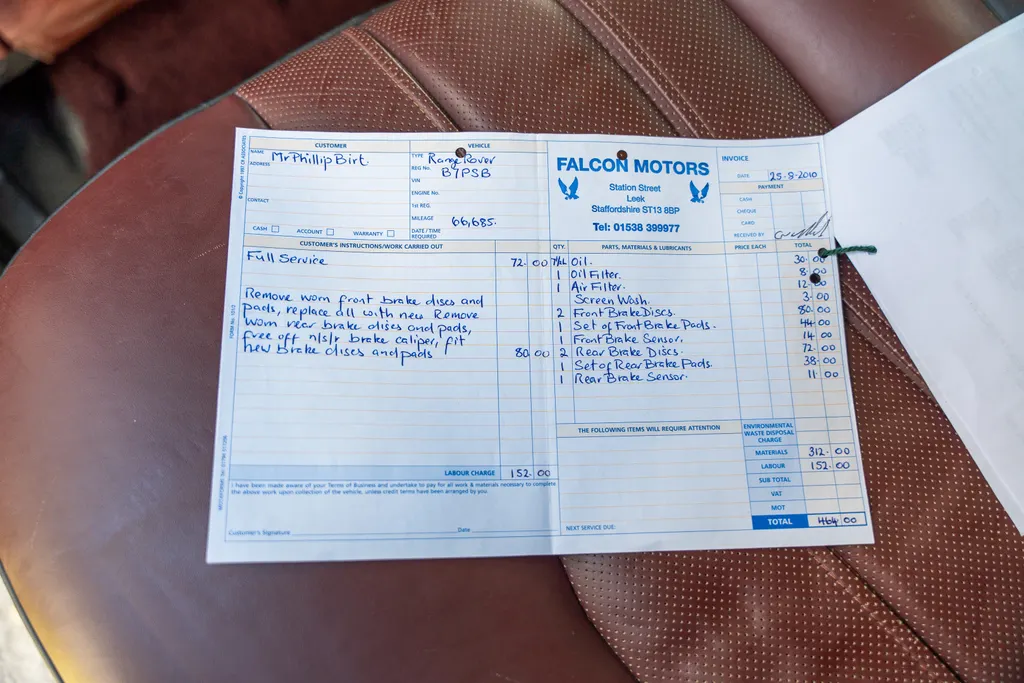 CUSTOMER
NAME Mr Phillip Birt.
ADDRESS
CONTACT
CASH ACCOUNT WARRANTY
VEHICLE
TYPE Range Rover
REG No. B7PSB
VIN
ENGINE No.
1st REG.
MILEAGE 66,685.
DATE / TIME REQUIRED
FALCON MOTORS
Station Street
Leek
Staffordshire ST13 8BP
Tel: 01538 399977
INVOICE
DATE 25-8-2010
PAYMENT
CASH
CHEQUE
CARD
RECEIVED BY
CUSTOMER'S INSTRUCTIONS/WORK CARRIED OUT
Full Service 72.00
Remove worn front brake discs and
pads, replace all with new Remove
worn rear brake discs and pads,
free off n/s/r brake caliper, fit
new brake discs and pads 80 00
LABOUR CHARGE 152.00
I have been made aware of your Terms of Business and undertake to pay for all work & materials necessary to complete
the above work upon collection of the vehicle, unless credit terms have been arranged by you.
Customer's Signature Date
QTY. PARTS, MATERIALS & LUBRICANTS PRICE EACH TOTAL
Oil. 30.00
1 Oil Filter. 8.00
1 Air Filter. 12
Screen Wash. 3.00
2 Front Brake Discs. 80.00
1 Set of Front Brake Pads. 44.00
1 Front Brake Sensor. 14.00
2 Rear Brake Discs. 72.00
1 Set of Rear Brake Pads. 38.00
1 Rear Brake Sensor. 11.00
THE FOLLOWING ITEMS WILL REQUIRE ATTENTION
NEXT SERVICE DUE:
ENVIRONMENTAL
WASTE DISPOSAL
CHARGE
MATERIALS 312.00
LABOUR 152.00
SUB TOTAL
VAT
MOT
TOTAL 464 00